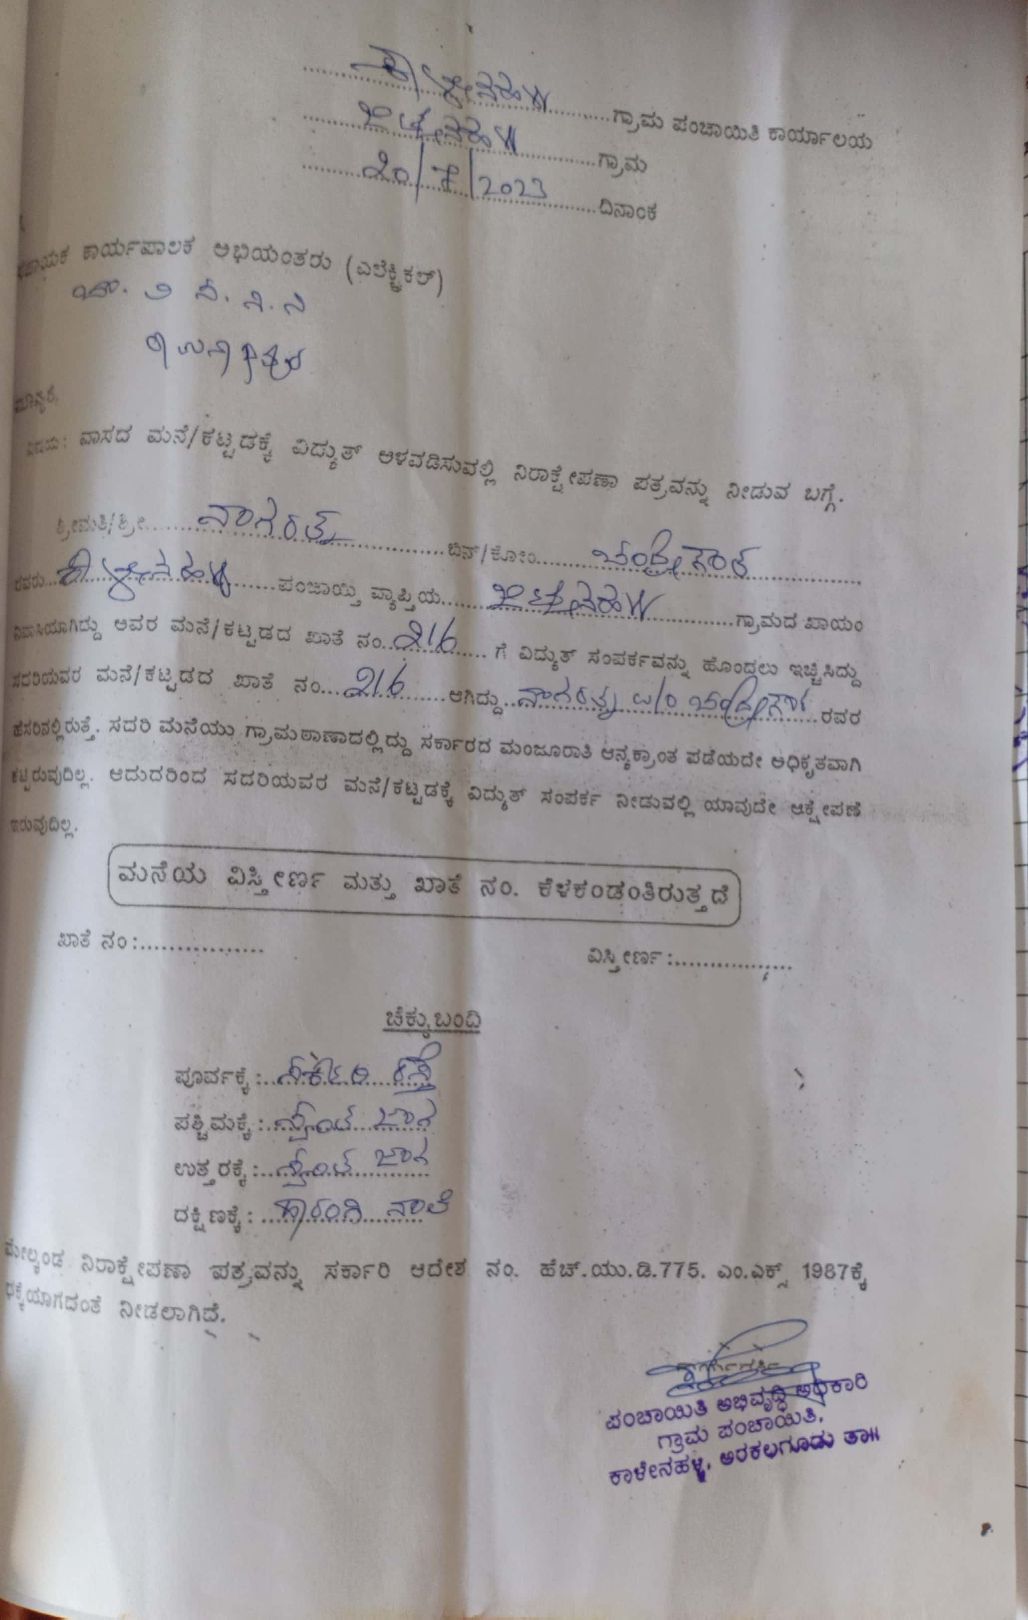 ಕಾಳೇನಹಳ್ಳಿ ಗ್ರಾಮ ಪಂಚಾಯಿತಿ ಕಾರ್ಯಾಲಯ
ಗ್ರಾಮ
20/7/2023 ದಿನಾಂಕ
ಸಹಾಯಕ ಕಾರ್ಯಪಾಲಕ ಅಭಿಯಂತರು (ಎಲೆಕ್ಟ್ರಿಕಲ್)
ಮಾನ್ಯರೆ,
ವಿಷಯ: ವಾಸದ ಮನೆ/ಕಟ್ಟಡಕ್ಕೆ ವಿದ್ಯುತ್ ಅಳವಡಿಸುವಲ್ಲಿ ನಿರಾಕ್ಷೇಪಣಾ ಪತ್ರವನ್ನು ನೀಡುವ ಬಗ್ಗೆ.
ಶ್ರೀಮತಿ/ಶ್ರೀ ನಾಗರತ್ನ ಬಿನ್/ಕೋಂ ಚಂದ್ರೇಗೌಡ
ರವರು ಕಾಳೇನಹಳ್ಳಿ ಪಂಚಾಯ್ತಿ ವ್ಯಾಪ್ತಿಯ ಗ್ರಾಮದ ಖಾಯಂ
ನಿವಾಸಿಯಾಗಿದ್ದು ಅವರ ಮನೆ/ಕಟ್ಟಡದ ಖಾತೆ ನಂ. 216 ಗೆ ವಿದ್ಯುತ್ ಸಂಪರ್ಕವನ್ನು ಹೊಂದಲು ಇಚ್ಚಿಸಿದ್ದು
ಸದರಿಯವರ ಮನೆ/ಕಟ್ಟಡದ ಖಾತೆ ನಂ. 216 ಆಗಿದ್ದು ನಾಗರತ್ನ w/o ಚಂದ್ರೇಗೌಡ ರವರ
ಹೆಸರಿನಲ್ಲಿರುತ್ತೆ. ಸದರಿ ಮನೆಯು ಗ್ರಾಮಠಾಣಾದಲ್ಲಿದ್ದು ಸರ್ಕಾರದ ಮಂಜೂರಾತಿ ಅನ್ಯಕ್ರಾಂತ ಪಡೆಯದೇ ಅಧಿಕೃತವಾಗಿ
ಕಟ್ಟಿರುವುದಿಲ್ಲ. ಆದುದರಿಂದ ಸದರಿಯವರ ಮನೆ/ಕಟ್ಟಡಕ್ಕೆ ವಿದ್ಯುತ್ ಸಂಪರ್ಕ ನೀಡುವಲ್ಲಿ ಯಾವುದೇ ಆಕ್ಷೇಪಣೆ
ಇರುವುದಿಲ್ಲ.
ಮನೆಯ ವಿಸ್ತೀರ್ಣ ಮತ್ತು ಖಾತೆ ನಂ. ಕೆಳಕಂಡಂತಿರುತ್ತದೆ
ಖಾತೆ ನಂ:................ ವಿಸ್ತೀರ್ಣ:................
ಚೆಕ್ಕುಬಂದಿ
ಪೂರ್ವಕ್ಕೆ: ಸರ್ಕಾರಿ ರಸ್ತೆ
ಪಶ್ಚಿಮಕ್ಕೆ: ಸ್ವಂತ ಜಾಗ
ಉತ್ತರಕ್ಕೆ: ಸ್ವಂತ ಜಾಗ
ದಕ್ಷಿಣಕ್ಕೆ: ಹಾರಂಗಿ ನಾಲೆ
ಮೇಲ್ಕಂಡ ನಿರಾಕ್ಷೇಪಣಾ ಪತ್ರವನ್ನು ಸರ್ಕಾರಿ ಆದೇಶ ನಂ. ಹೆಚ್.ಯು.ಡಿ.775. ಎಂ.ಎಕ್ಸ್ 1987ಕ್ಕೆ
ಧಕ್ಕೆಯಾಗದಂತೆ ನೀಡಲಾಗಿದೆ.
ಪಂಚಾಯಿತಿ ಅಭಿವೃದ್ಧಿ ಅಧಿಕಾರಿ
ಗ್ರಾಮ ಪಂಚಾಯಿತಿ,
ಕಾಳೇನಹಳ್ಳಿ, ಅರಕಲಗೂಡು ತಾ॥